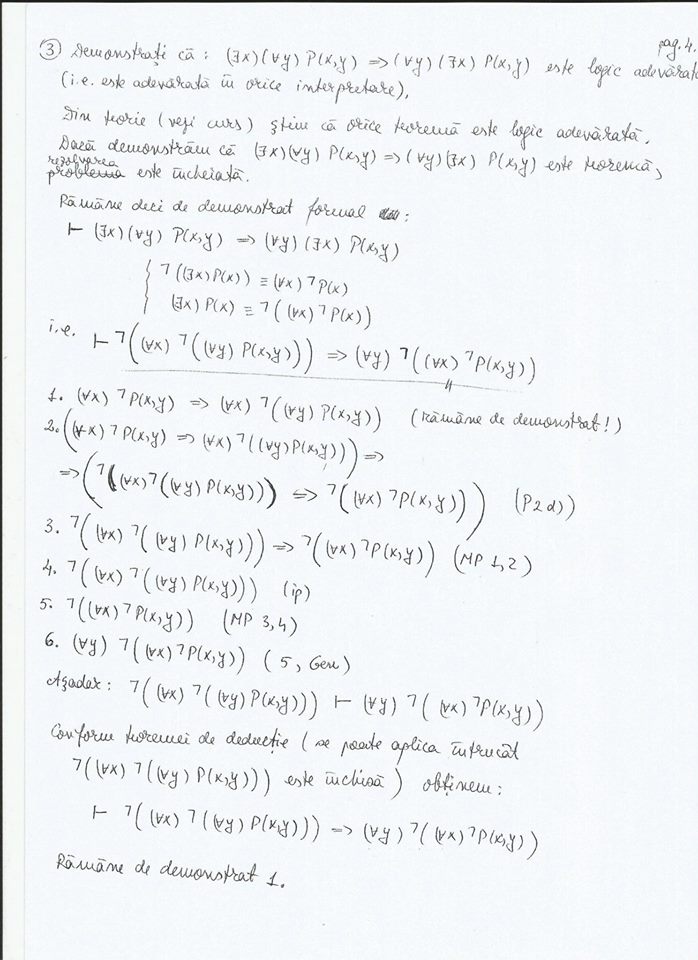 pag. 4.
③ Demonstrați că: (∃x)(∀y) P(x,y) ⟹ (∀y)(∃x) P(x,y) este logic adevărat
(i.e. este adevărată în orice interpretare).
Din teorie (vezi curs) știm că orice teoremă este logic adevărată.
Dacă demonstrăm că (∃x)(∀y) P(x,y) ⟹ (∀y)(∃x) P(x,y) este teoremă,
rezolvarea
problema este încheiată.
Rămâne deci de demonstrat formal :
⊢ (∃x)(∀y) P(x,y) ⟹ (∀y)(∃x) P(x,y)
{ ⌐((∃x)P(x)) ≡ (∀x)⌐P(x)
(∃x) P(x) ≡ ⌐((∀x)⌐P(x))
i.e. ⊢ ⌐((∀x) ⌐((∀y) P(x,y))) ⟹ (∀y) ⌐((∀x) ⌐P(x,y))
1. (∀x) ⌐P(x,y) ⟹ (∀x) ⌐((∀y) P(x,y)) (Rămâne de demonstrat!)
2. ((∀x) ⌐P(x,y) ⟹ (∀x) ⌐((∀y)P(x,y))) ⟹
⟹ (⌐((∀x)⌐((∀y) P(x,y))) ⟹ ⌐((∀x) ⌐P(x,y))) (P2 d))
3. ⌐((∀x) ⌐((∀y) P(x,y))) ⟹ ⌐((∀x) ⌐P(x,y)) (MP 1,2)
4. ⌐((∀x) ⌐((∀y) P(x,y))) (ip)
5. ⌐((∀x) ⌐P(x,y)) (MP 3,4)
6. (∀y) ⌐((∀x) ⌐P(x,y)) (5, Gen)
Așadar: ⌐((∀x) ⌐((∀y) P(x,y))) ⊢ (∀y) ⌐((∀x) ⌐P(x,y))
Conform teoremei de deducție (se poate aplica întrucât
⌐((∀x) ⌐((∀y) P(x,y))) este închisă) obținem:
⊢ ⌐((∀x) ⌐((∀y) P(x,y))) ⟹ (∀y) ⌐((∀x) ⌐P(x,y))
Rămâne de demonstrat 1.